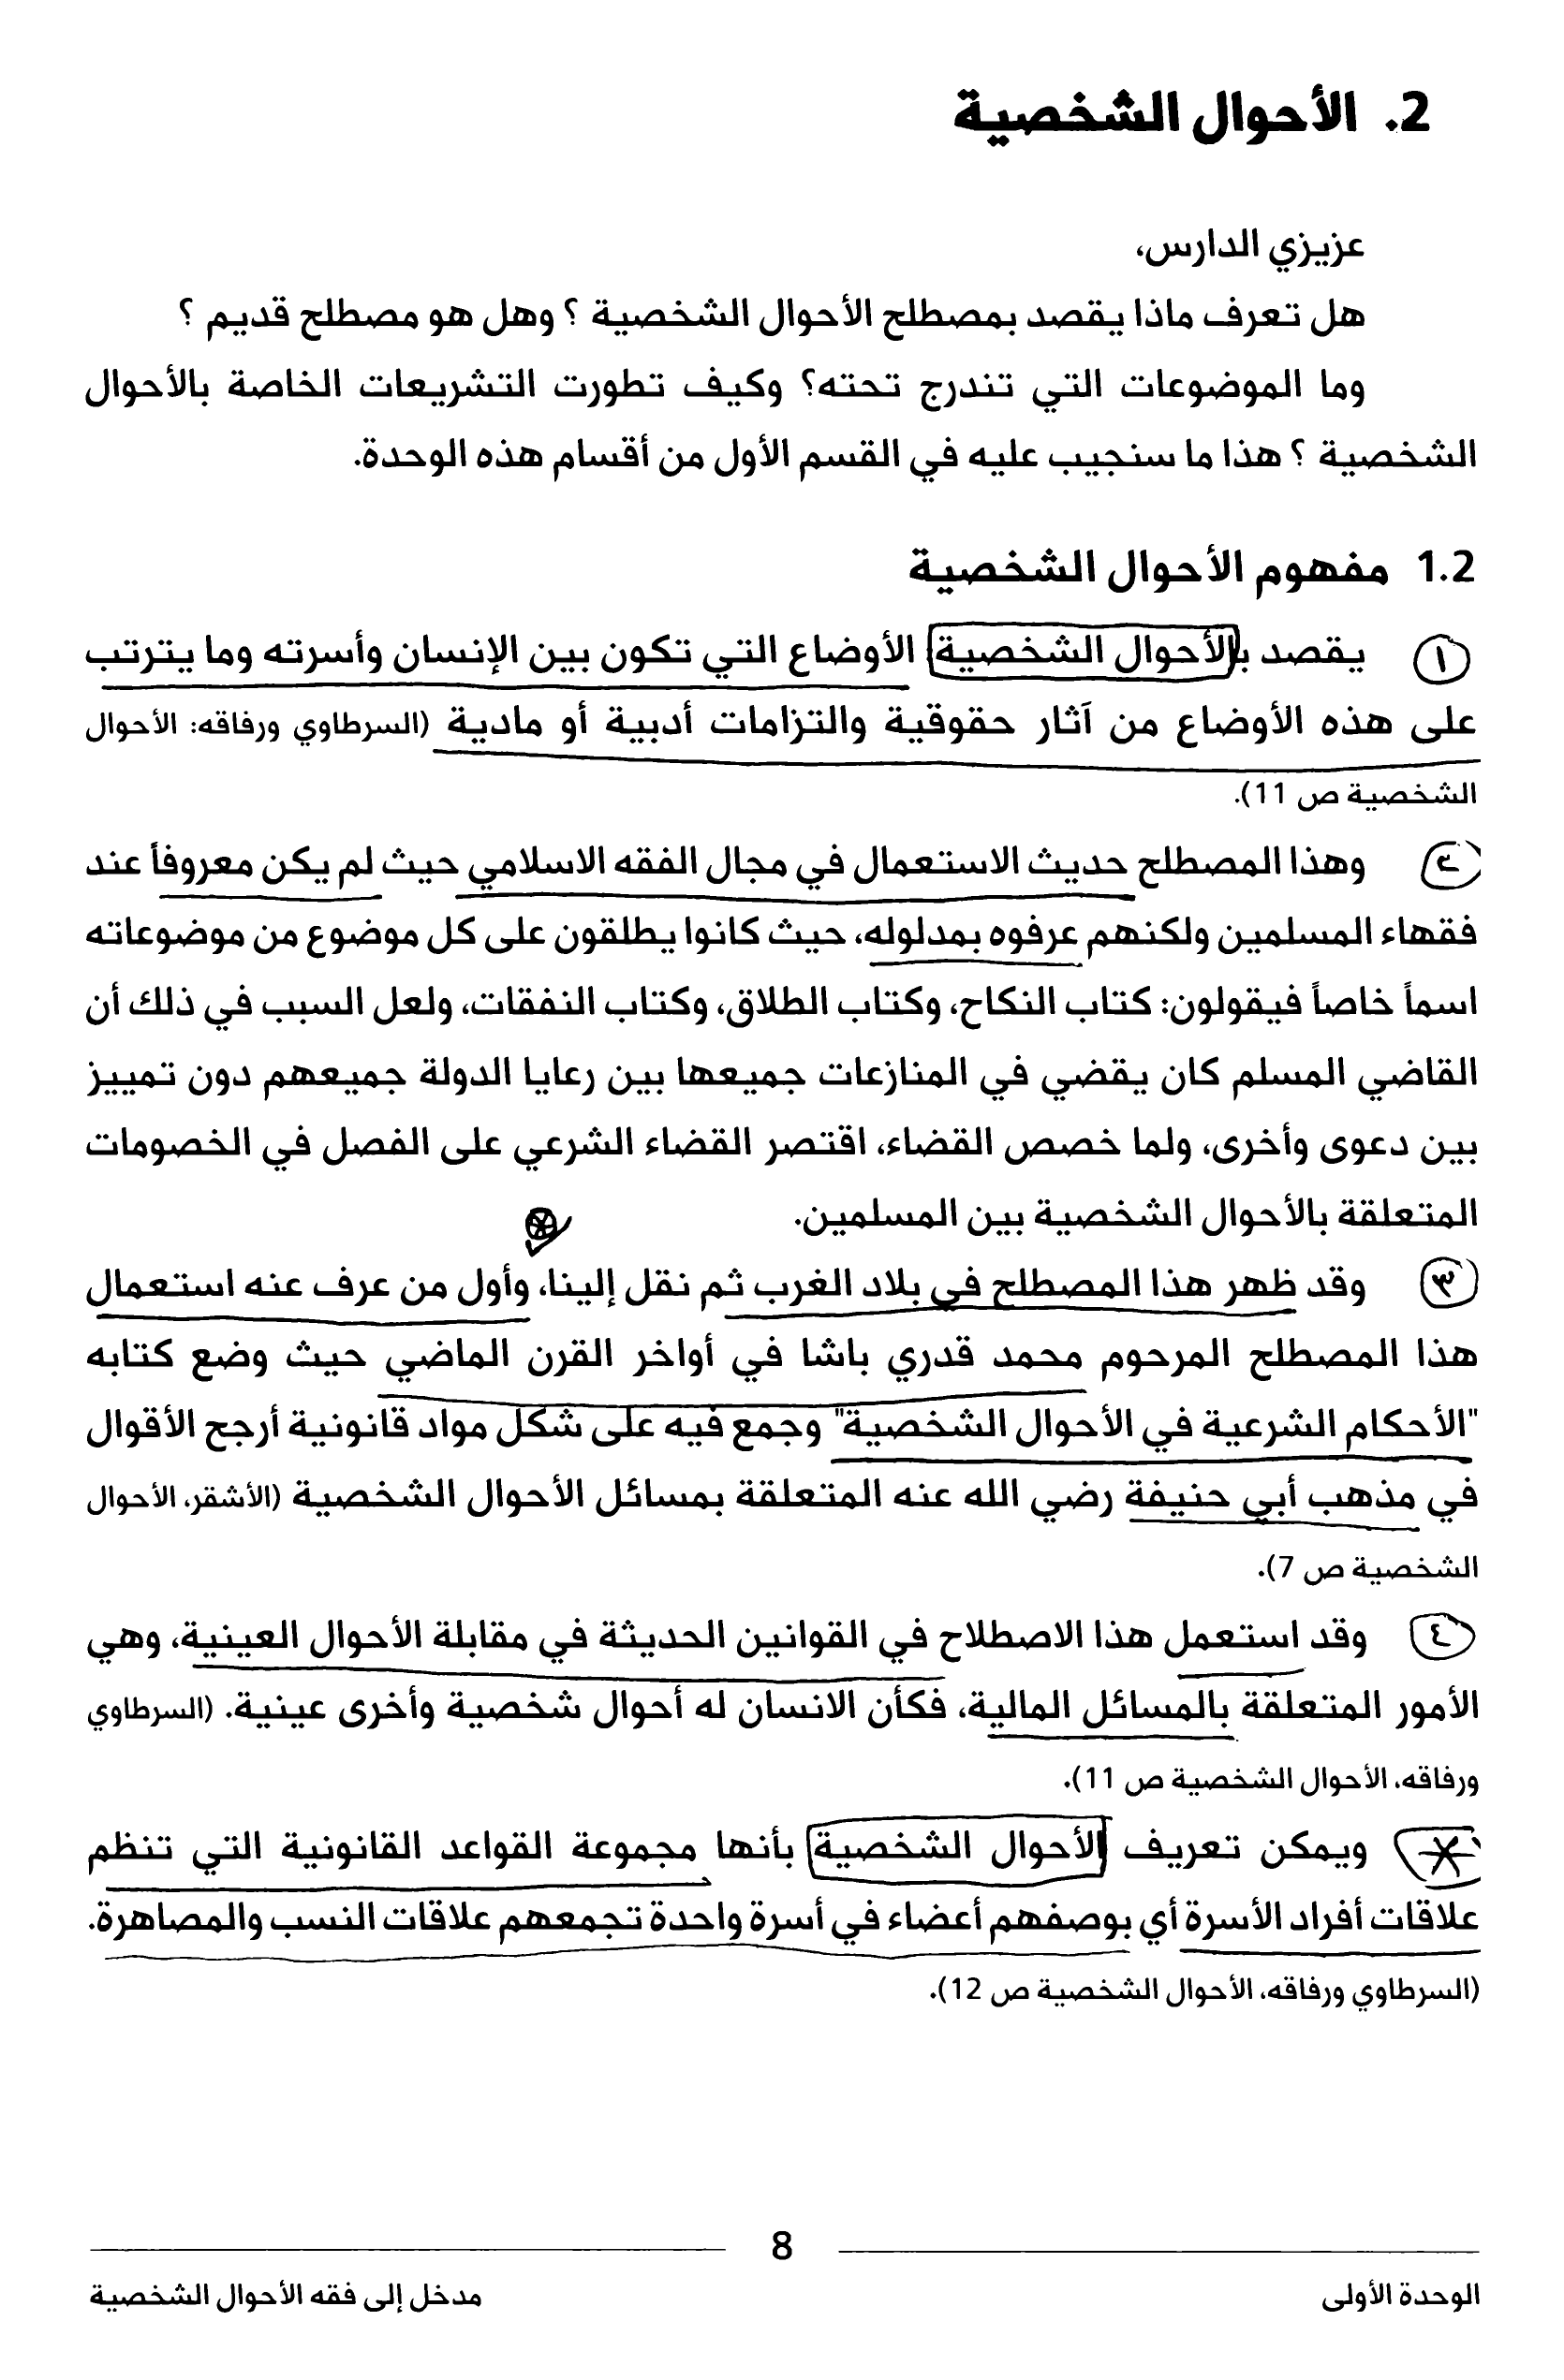 2. الأحوال الشخصية
عزيزي الدارس،
هل تعرف ماذا يقصد بمصطلح الأحوال الشخصية ؟ وهل هو مصطلح قديم ؟
وما الموضوعات التي تندرج تحته؟ وكيف تطورت التشريعات الخاصة بالأحوال
الشخصية ؟ هذا ما سنجيب عليه في القسم الأول من أقسام هذه الوحدة.
1.2 مفهوم الأحوال الشخصية
١ يقصد بالأحوال الشخصية الأوضاع التي تكون بين الإنسان وأسرته وما يترتب
على هذه الأوضاع من آثار حقوقية والتزامات أدبية أو مادية (السرطاوي ورفاقه: الأحوال
الشخصية ص 11).
٢ وهذا المصطلح حديث الاستعمال في مجال الفقه الاسلامي حيث لم يكن معروفاً عند
فقهاء المسلمين ولكنهم عرفوه بمدلوله، حيث كانوا يطلقون على كل موضوع من موضوعاته
اسماً خاصاً فيقولون: كتاب النكاح، وكتاب الطلاق، وكتاب النفقات، ولعل السبب في ذلك أن
القاضي المسلم كان يقضي في المنازعات جميعها بين رعايا الدولة جميعهم دون تمييز
بين دعوى وأخرى، ولما خصص القضاء، اقتصر القضاء الشرعي على الفصل في الخصومات
المتعلقة بالأحوال الشخصية بين المسلمين.
٣ وقد ظهر هذا المصطلح في بلاد الغرب ثم نقل إلينا، وأول من عرف عنه استعمال
هذا المصطلح المرحوم محمد قدري باشا في أواخر القرن الماضي حيث وضع كتابه
"الأحكام الشرعية في الأحوال الشخصية" وجمع فيه على شكل مواد قانونية أرجح الأقوال
في مذهب أبي حنيفة رضي الله عنه المتعلقة بمسائل الأحوال الشخصية (الأشقر، الأحوال
الشخصية ص 7).
٤ وقد استعمل هذا الاصطلاح في القوانين الحديثة في مقابلة الأحوال العينية، وهي
الأمور المتعلقة بالمسائل المالية، فكأن الانسان له أحوال شخصية وأخرى عينية. (السرطاوي
ورفاقه، الأحوال الشخصية ص 11).
ويمكن تعريف الأحوال الشخصية بأنها مجموعة القواعد القانونية التي تنظم
علاقات أفراد الأسرة أي بوصفهم أعضاء في أسرة واحدة تجمعهم علاقات النسب والمصاهرة.
(السرطاوي ورفاقه، الأحوال الشخصية ص 12).
8
الوحدة الأولى
مدخل إلى فقه الأحوال الشخصية